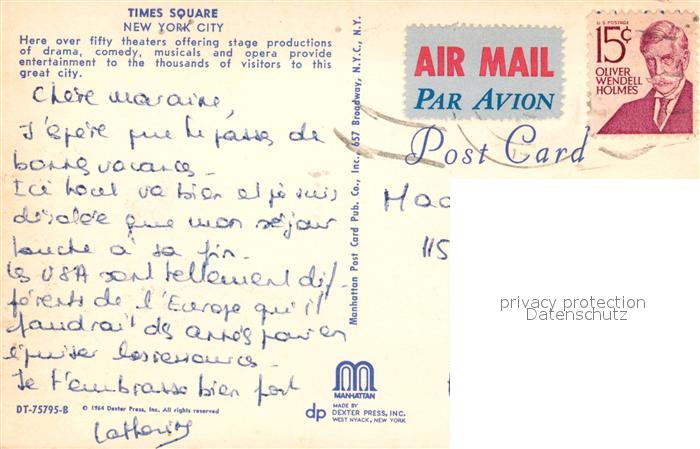 TIMES SQUARE
NEW YORK CITY
Here over fifty theaters offering stage productions
of drama, comedy, musicals and opera provide
entertainment to the thousands of visitors to this
great city.
Chère marraine,
J'espère que tu passes de
bonnes vacances.
Ici tout va bien et je suis
désolée que mon séjour
touche à sa fin.
Les USA sont tellement dif-
férents de l'Europe qu'il
faudrait des années pour en
épuiser les ressources.
Je t'embrasse bien fort
Catherine
DT-75795-B
© 1964 Dexter Press, Inc. All rights reserved
Manhattan Post Card Pub. Co., Inc., 657 Broadway, N.Y.C., N.Y.
MANHATTAN
dp
MADE BY
DEXTER PRESS, INC.
WEST NYACK, NEW YORK
AIR MAIL
PAR AVION
U.S. POSTAGE
15¢
OLIVER
WENDELL
HOLMES
Post Card
115
privacy protection
Datenschutz